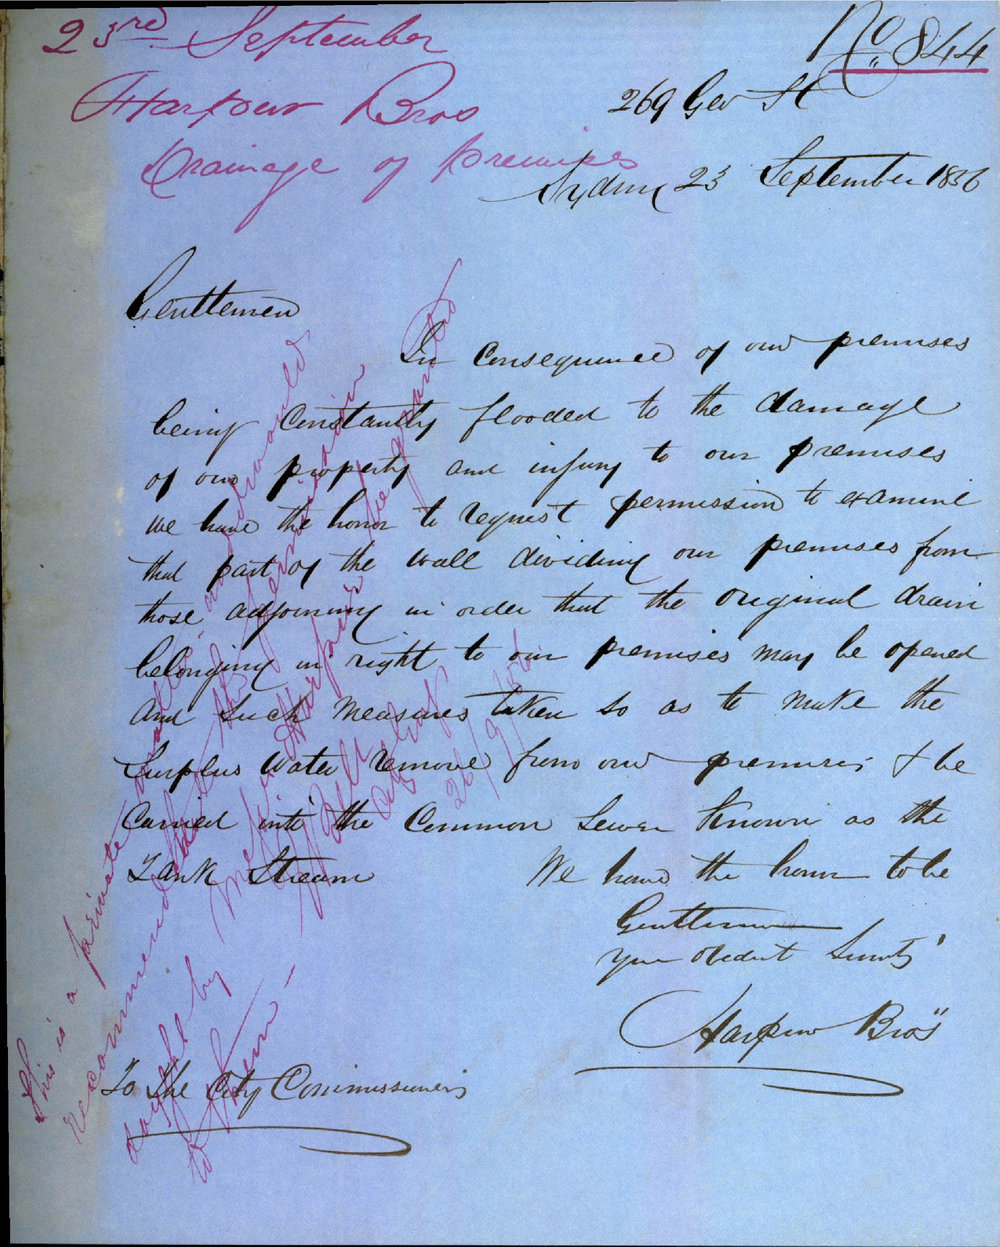 23rd September
Harpur Bros
Drainage of premises
No 844
269 Geo St
Sydney 23 September 1856
Gentlemen
In consequence of our premises
being constantly flooded to the damage
of our property and injury to our premises
we have the honor to request permission to examine
that part of the wall dividing our premises from
those adjoining in order that the original drain
belonging in right to our premises may be opened
and such measures taken so as to make the
Surplus Water remove from our premises & be
Carried into the Common Sewer Known as the
Tank Stream
We have the honor to be
Gentlemen
Your Obedient Servts
Harpur Bros
To The City Commissioners
This is a private matter and would
recommend that the permission
by Messrs Harpur be granted
to them
W Bell
City
26/9/56